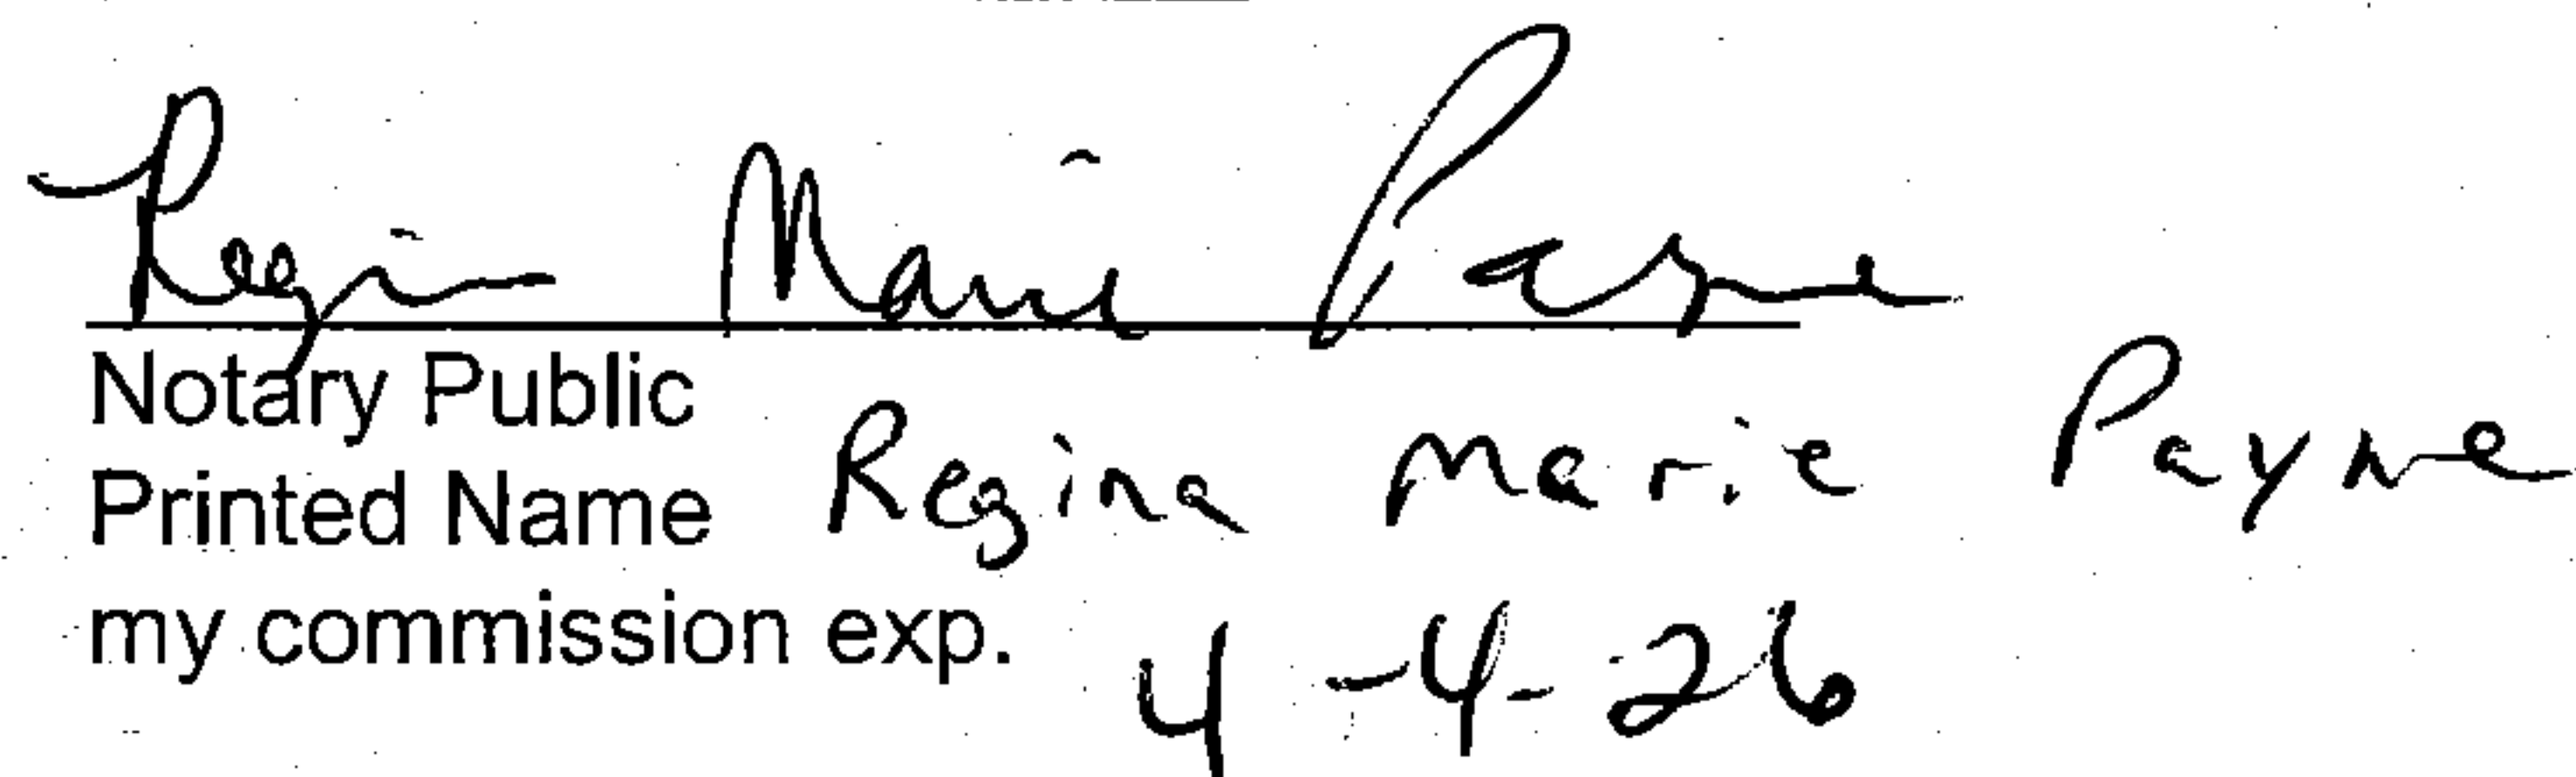 Regina Marie Payne
Notary Public
Printed Name Regina Marie Payne
my commission exp. 4-4-26